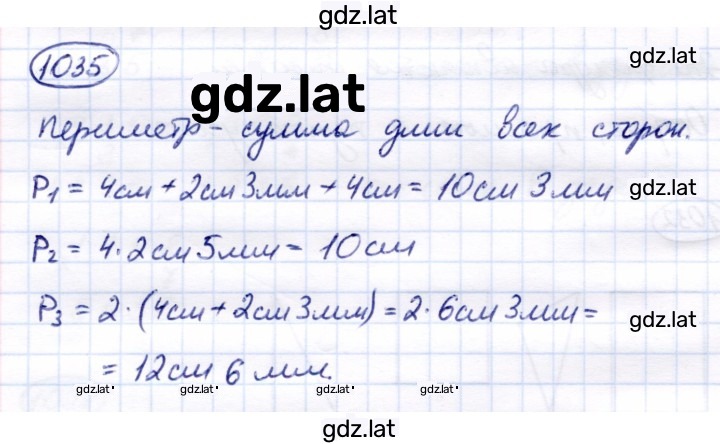 gdz.lat
gdz.lat
1035
gdz.lat
Периметр - сумма длин всех сторон.
P₁ = 4см + 2см 3мм + 4см = 10см 3мм
gdz.lat
P₂ = 4·2см 5мм = 10см
P₃ = 2·(4см + 2см 3мм) = 2·6см 3мм =
gdz.lat
= 12см 6 мм.
gdz.lat gdz.lat gdz.lat gdz.lat
gdz.lat